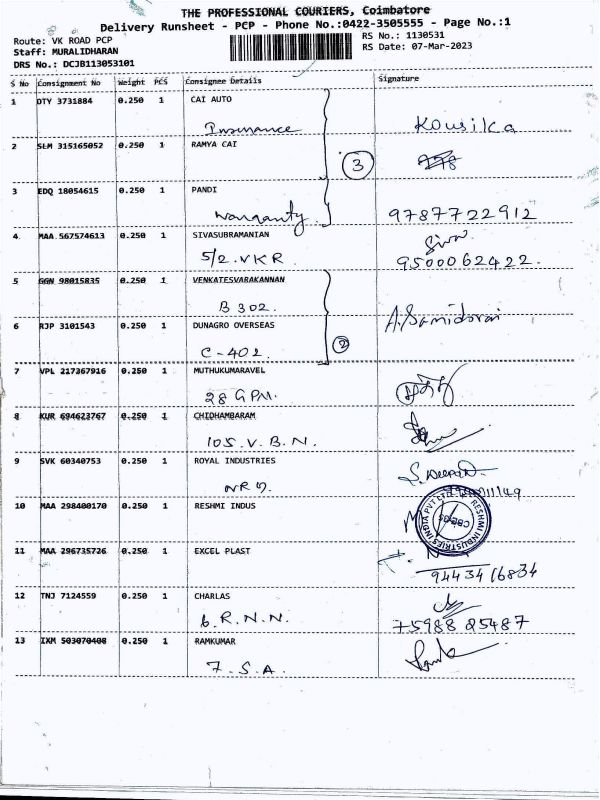 THE PROFESSIONAL COURIERS, Coimbatore
Delivery Runsheet - PCP - Phone No.:0422-3505555 - Page No.:1
Route: VK ROAD PCP
Staff: MURALIDHARAN
DRS No.: DCJB113053101
RS No.: 1130531
RS Date: 07-Mar-2023
S No Consignment No Weight PCS Consignee Details Signature
1 DTY 3731884 0.250 1 CAI AUTO
Insurance Kousika
2 SLM 315165052 0.250 1 RAMYA CAI
3
3 EDQ 18054615 0.250 1 PANDI
Warranty. 9787722912
4 MAA 567574613 0.250 1 SIVASUBRAMANIAN Siva
5/2. VKR 9500062422.
5 GGN 98015835 0.250 1 VENKATESVARAKANNAN
B 302. A. Samidorai
6 RJP 3101543 0.250 1 DUNAGRO OVERSEAS
C-402. 2
7 VPL 217367916 0.250 1 MUTHUKUMARAVEL
28 G.P.N.
8 KUR 694623767 0.250 1 CHIDHAMBARAM
105. V. B. N.
9 SVK 60340753 0.250 1 ROYAL INDUSTRIES
10 MAA 298400170 0.250 1 RESHMI INDUS
RESHMI INDUSTRIES INDIA PVT LTD
11 MAA 296735726 0.250 1 EXCEL PLAST
9443416834
12 TNJ 7124559 0.250 1 CHARLAS
6. R. N. N. 7598825487
13 IXM 503070408 0.250 1 RAMKUMAR
7. S. A.